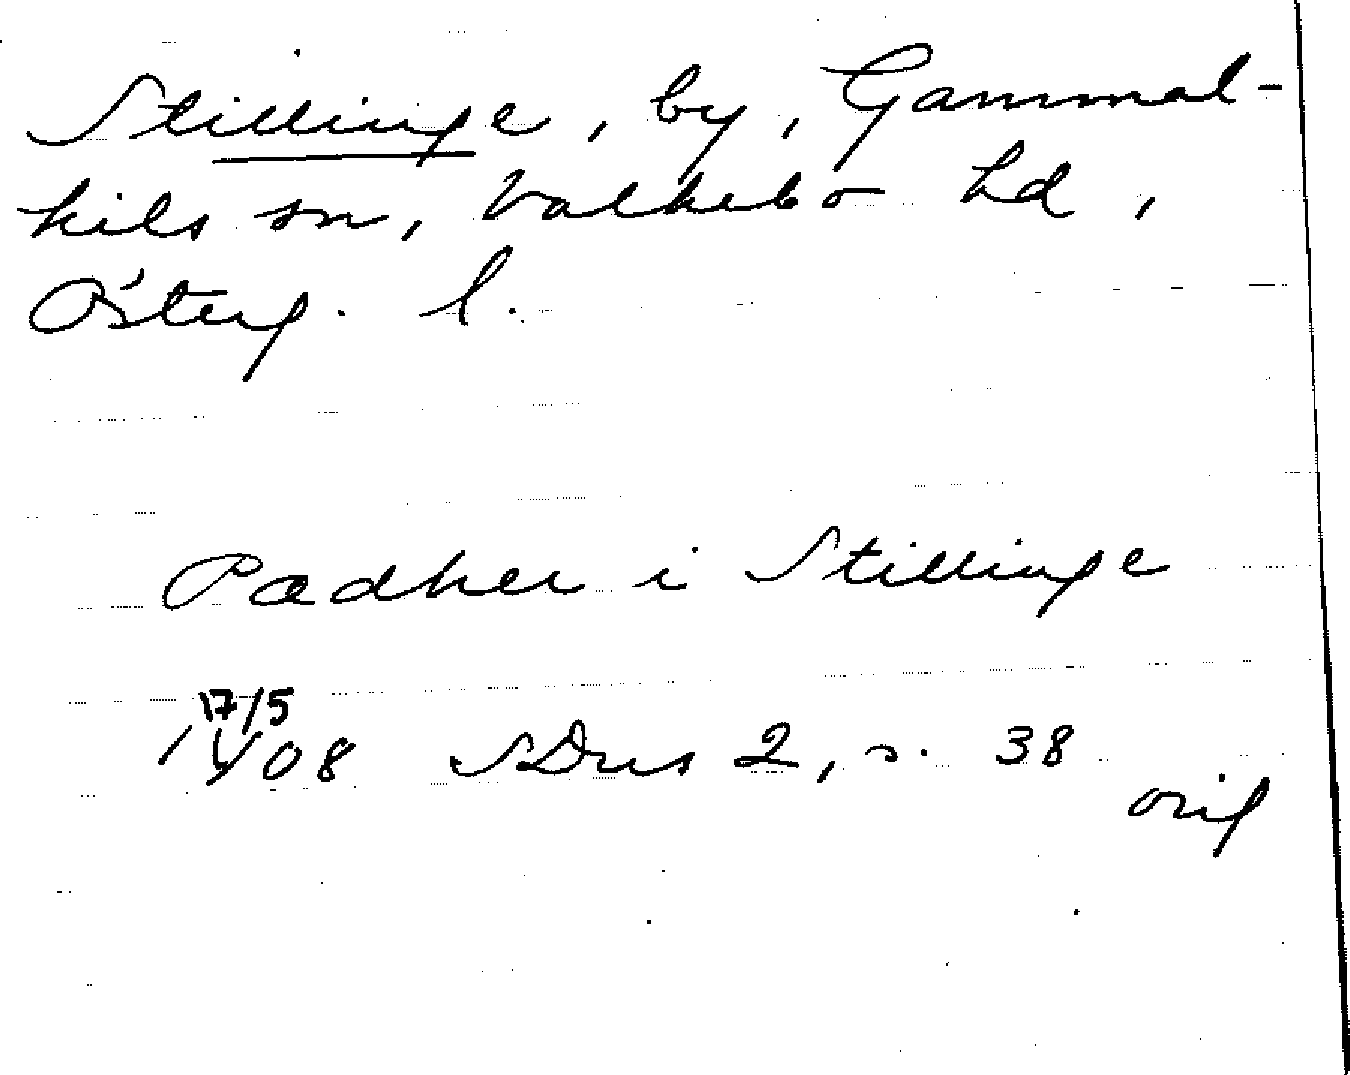 Stillinge, by, Gammal-
kils sn, Valkebo hd,
Österg. l.
Pædher i Stillinge
17/5
1408 SDns 2, s. 38
orig